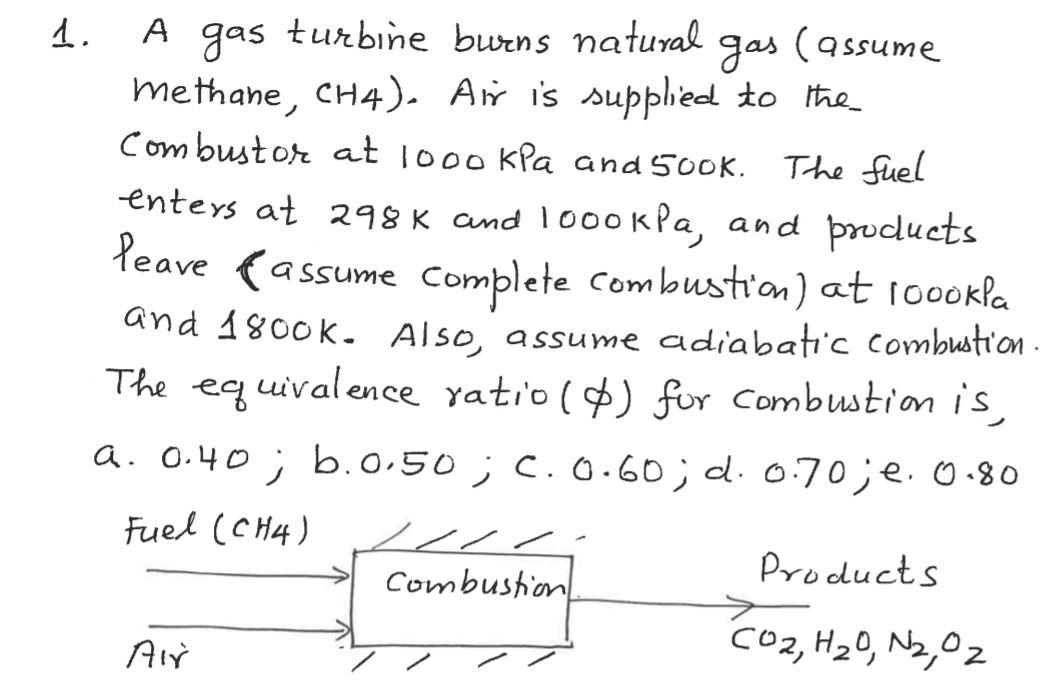 1. A gas turbine burns natural gas (assume
methane, CH4). Air is supplied to the
Combustor at 1000 kPa and 500K. The fuel
enters at 298 K and 1000 kPa, and products
leave (assume complete combustion) at 1000kPa
and 1800K. Also, assume adiabatic combustion.
The equivalence ratio (ϕ) for combustion is,
a. 0.40 ; b. 0.50 ; C. 0.60 ; d. 0.70 ; e. 0.80
Fuel (CH4)
Combustion
Products
Air
CO2, H2O, N2, O2